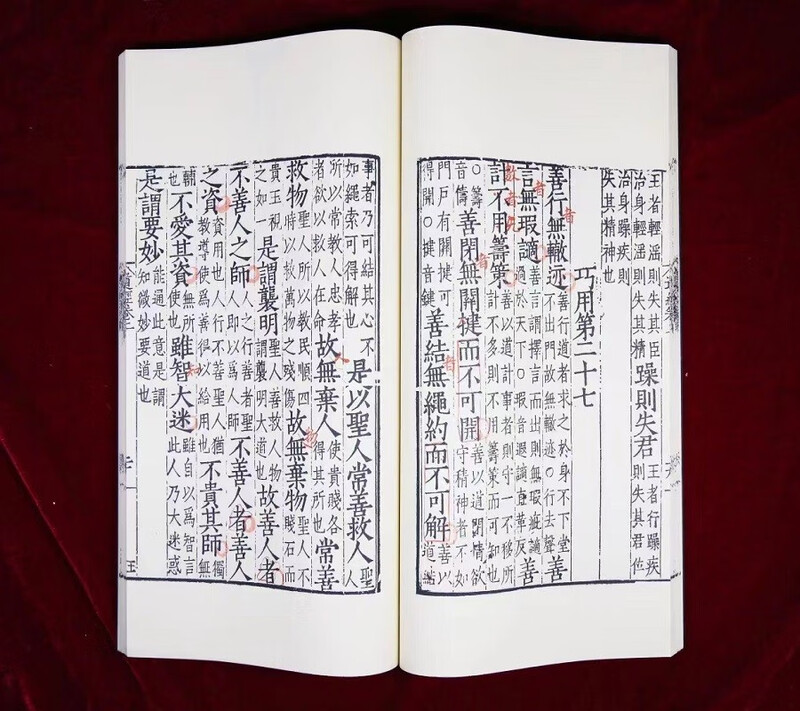 王者輕滛則失其臣治身輕滛則失其精躁則失君王者行躁疾則失其君位
治身躁疾則失其精神也
巧用第二十七
善行無轍迹善行道者求之於身不下堂不出門故無轍迹○行去聲善
言無瑕讁善言謂擇言而出則無瑕疵讁過於天下○瑕音遐讁直革反善
計不用籌策善以道計事者則守一不移所計不多則不用籌策而可知也
○籌音儔善閉無關揵而不可開善以道閉情欲守精神者不如
門戶有關揵可得開○揵音鍵善結無繩約而不可解善以道結
事者乃可結其心不如繩索可得解也是以聖人常善救人聖人
所以常教人忠孝者欲以救人在命故無棄人使貴賤各得其所也常善
救物聖人所以教民順四時以救萬物之殘傷故無棄物聖人不賤石而
貴玉視之如一是謂襲明聖人善救人物謂襲明大道也故善人者
不善人之師人之行善者聖人即以爲人師不善人者善人
之資資用也人行不善聖人猶教導使爲善得以給用也不貴其師獨無
輔也不愛其資無所使也雖智大迷雖自以爲智言此人乃大迷惑
是謂要妙能通此意是謂知微妙要道也
王
者
者
者
者
人